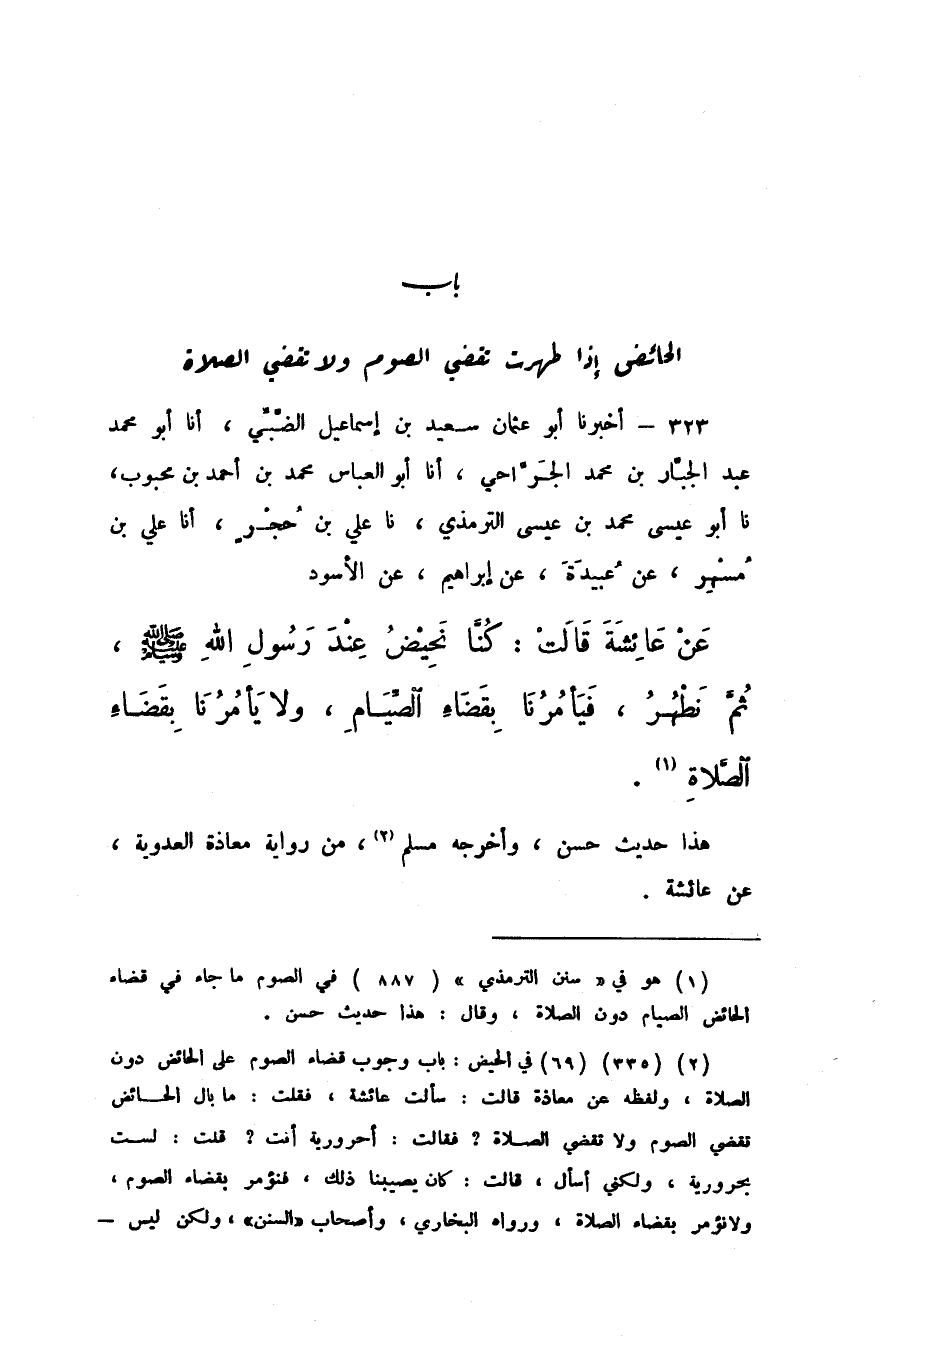 باب
الحائض إذا طهرت تقضي الصوم ولا تقضي الصلاة
٣٢٣ – أخبرنا أبو عثمان سعيد بن إسماعيل الضَّبِّي ، أنا أبو محمد
عبد الجبَّار بن محمد الجَرَّاحي ، أنا أبو العباس محمد بن أحمد بن محبوب،
نا أبو عيسى محمد بن عيسى الترمذي ، نا علي بن حُجْرٍ ، أنا علي بن
مُسْهِرٍ ، عن عُبيدَةَ ، عن إبراهيم ، عن الأسود
عَنْ عَائِشَةَ قَالَتْ : كُنَّا نَحِيْضُ عِنْدَ رَسُولِ اللهِ ﷺ ،
ثُمَّ نَطْهُرُ ، فَيَأْمُرُنَا بِقَضَاءِ الصِّيَامِ ، ولا يَأْمُرُنَا بِقَضَاءِ
الصَّلاةِ (١) .
هذا حديث حسن ، وأخرجه مسلم (٢) ، من رواية معاذة العدوية ،
عن عائشة .
(١) هو في « سنن الترمذي » ( ٨٨٧ ) في الصوم ما جاء في قضاء
الحائض الصيام دون الصلاة ، وقال : هذا حديث حسن .
(٢) (٣٣٥) (٦٩) في الحيض : باب وجوب قضاء الصوم على الحائض دون
الصلاة ، ولفظه عن معاذة قالت : سألت عائشة ، فقلت : ما بال الحائض
تقضي الصوم ولا تقضي الصلاة ? فقالت : أحرورية أنت ? قلت : لست
بحرورية ، ولكني أسأل ، قالت : كان يصيبنا ذلك ، فنؤمر بقضاء الصوم ،
ولا نؤمر بقضاء الصلاة ، ورواه البخاري ، وأصحاب «السنن» ، ولكن ليس –